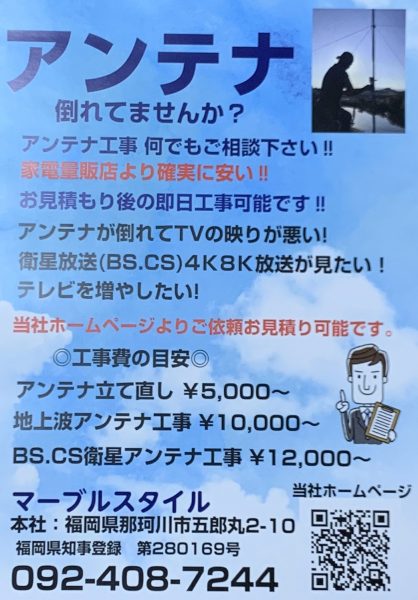 アンテナ
倒れてませんか？
アンテナ工事 何でもご相談下さい!!
家電量販店より確実に安い!!
お見積もり後の即日工事可能です!!
アンテナが倒れてTVの映りが悪い!
衛星放送(BS.CS)4K8K放送が見たい！
テレビを増やしたい!
当社ホームページよりご依頼お見積り可能です。
◎工事費の目安◎
アンテナ立て直し ￥5,000〜
地上波アンテナ工事 ￥10,000〜
BS.CS衛星アンテナ工事 ￥12,000〜
マーブルスタイル
当社ホームページ
本社：福岡県那珂川市五郎丸2-10
福岡県知事登録　第280169号
092-408-7244